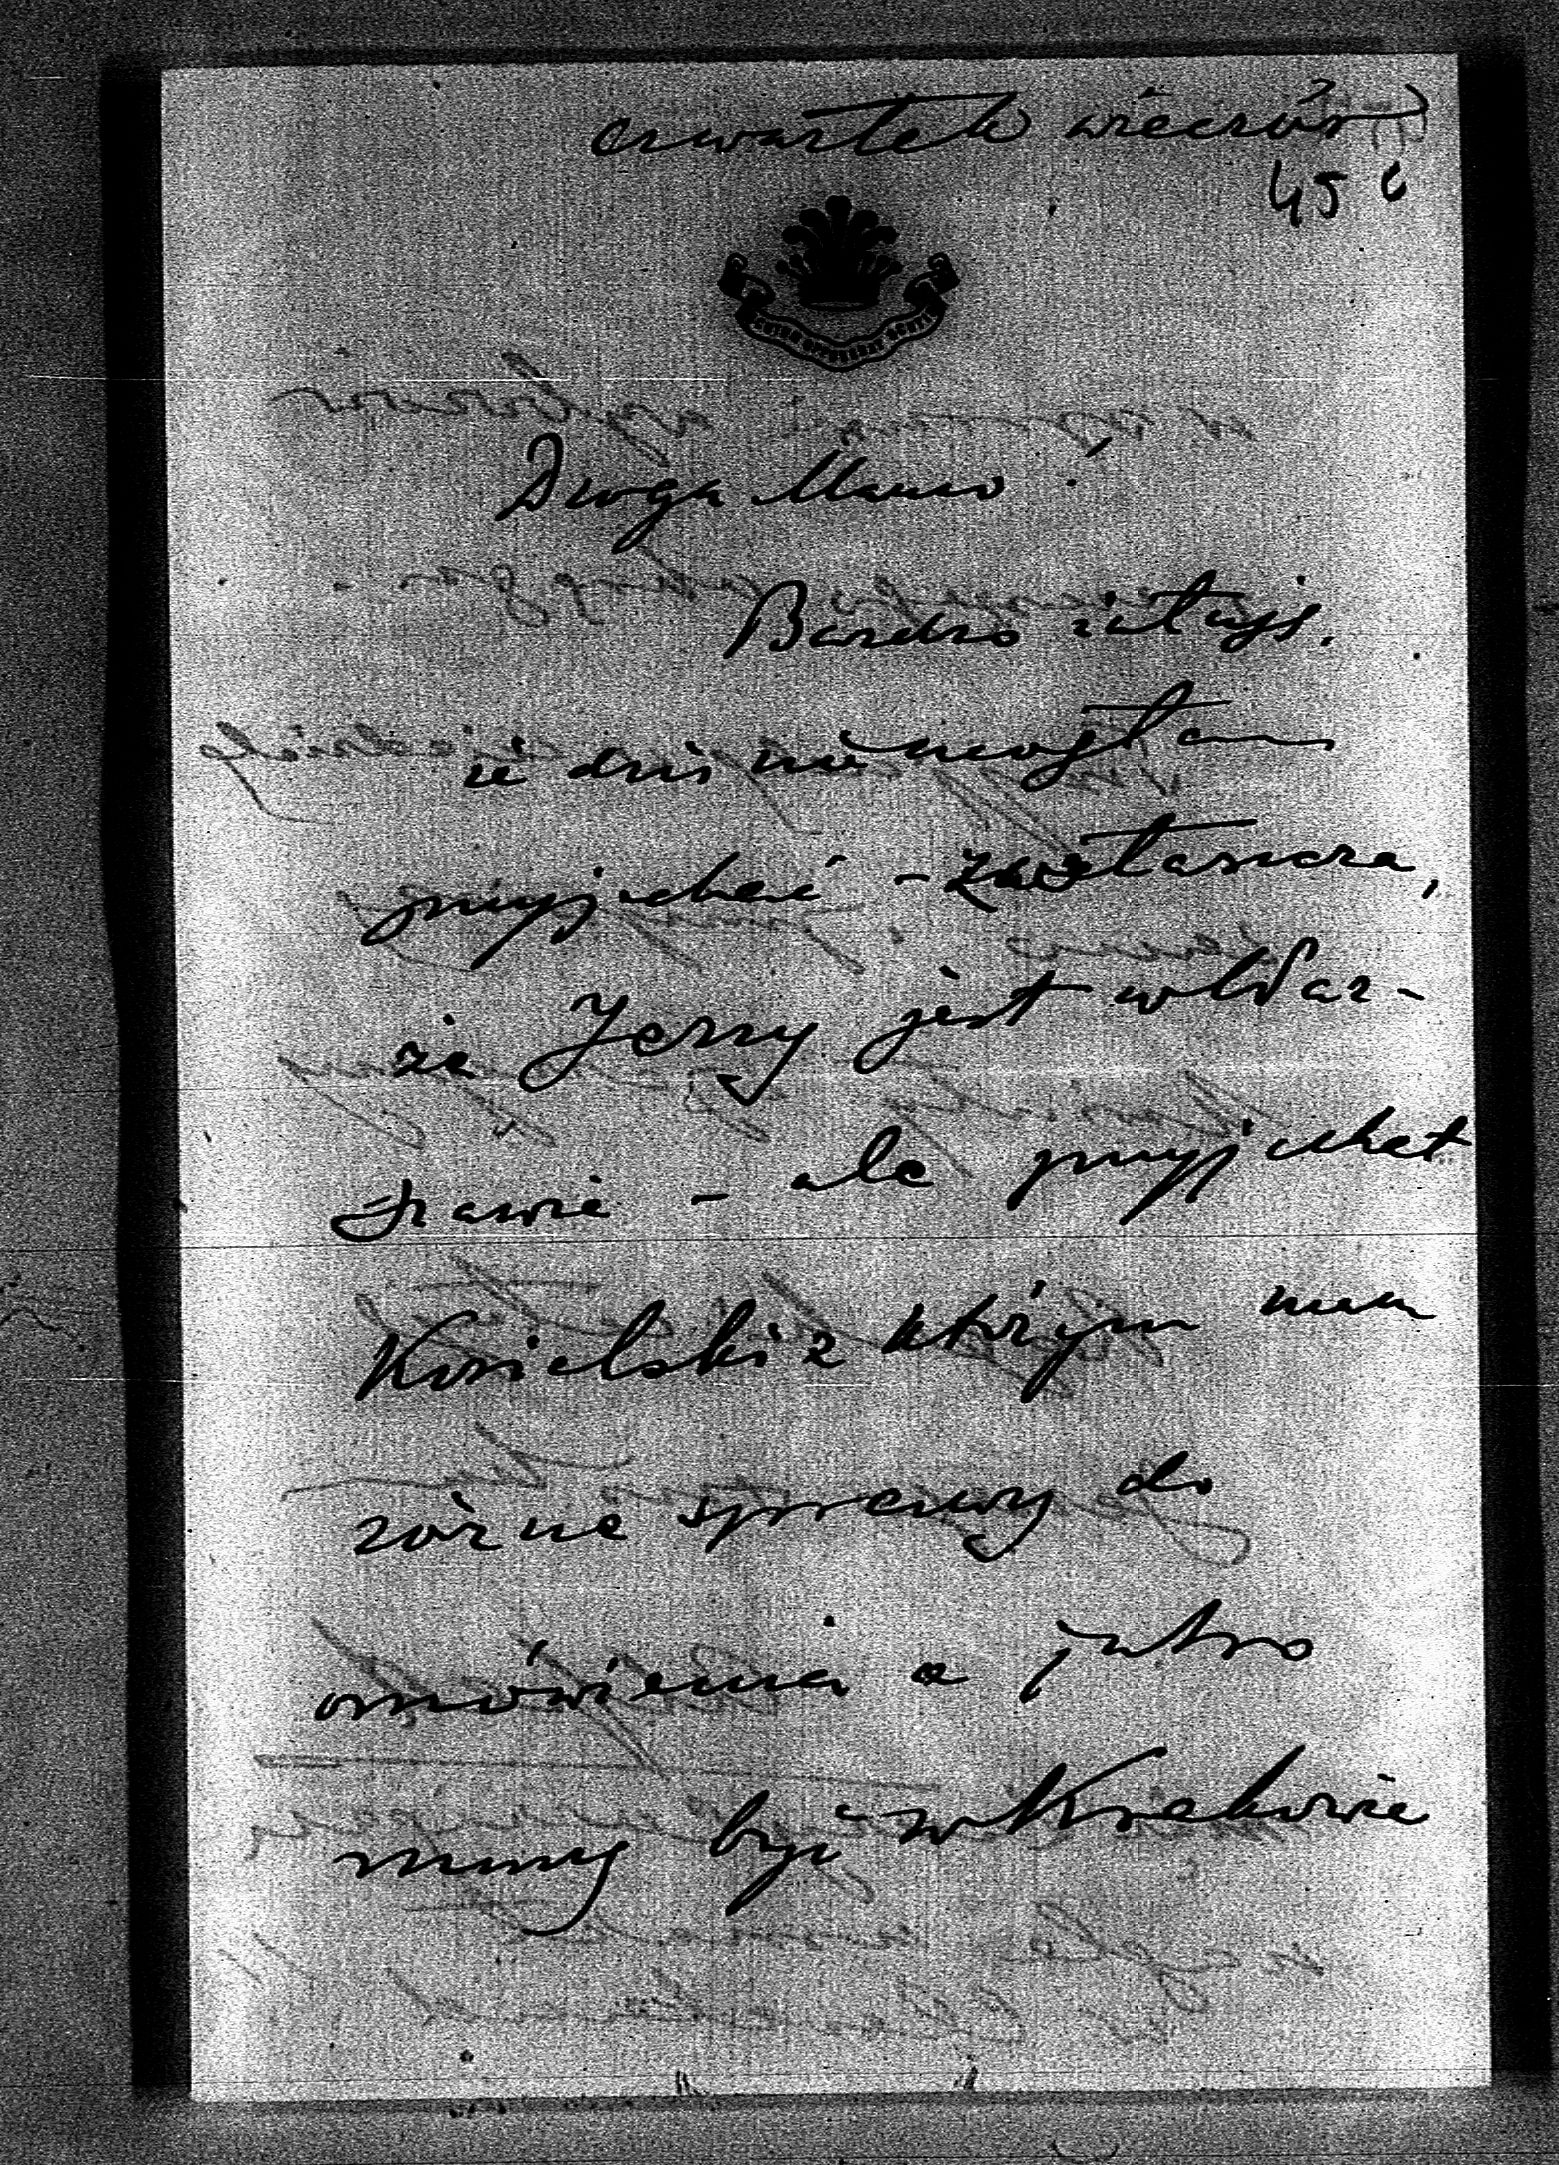 czwartek wieczór
45
Droga Mamo!
Bardzo żałuję,
że dziś nie mogłam
przyjechać - zwłaszcza,
że Jerzy jest w War-
szawie - ale przyjechał
Kozielski z którym mam
różne sprawy do
omówienia a jutro
muszę być w Krakowie